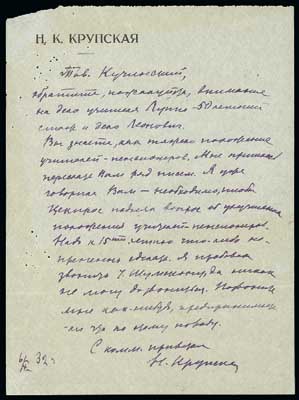 Н. К. КРУПСКАЯ
Тов. Кучковский,
обратите, пожалуйста, внимание
на дело учителя 50-летний
стаж и дело Леонович.
Вы знаете, как тяжело положение
учителей-пенсионеров. Мне пришлось
переслать Вам ряд писем. Я уже
говорила Вам — необходимо, чтоб
Цекпрос поднял вопрос об улучшении
положения учителей-пенсионеров.
Надо к 15-летию что-либо
сделать. Я пробовала
звонить т. да никак
не могу дозвониться. Позвоните
мне как-нибудь,
по этому поводу.
С комм. приветом
Н. Крупская
32 г